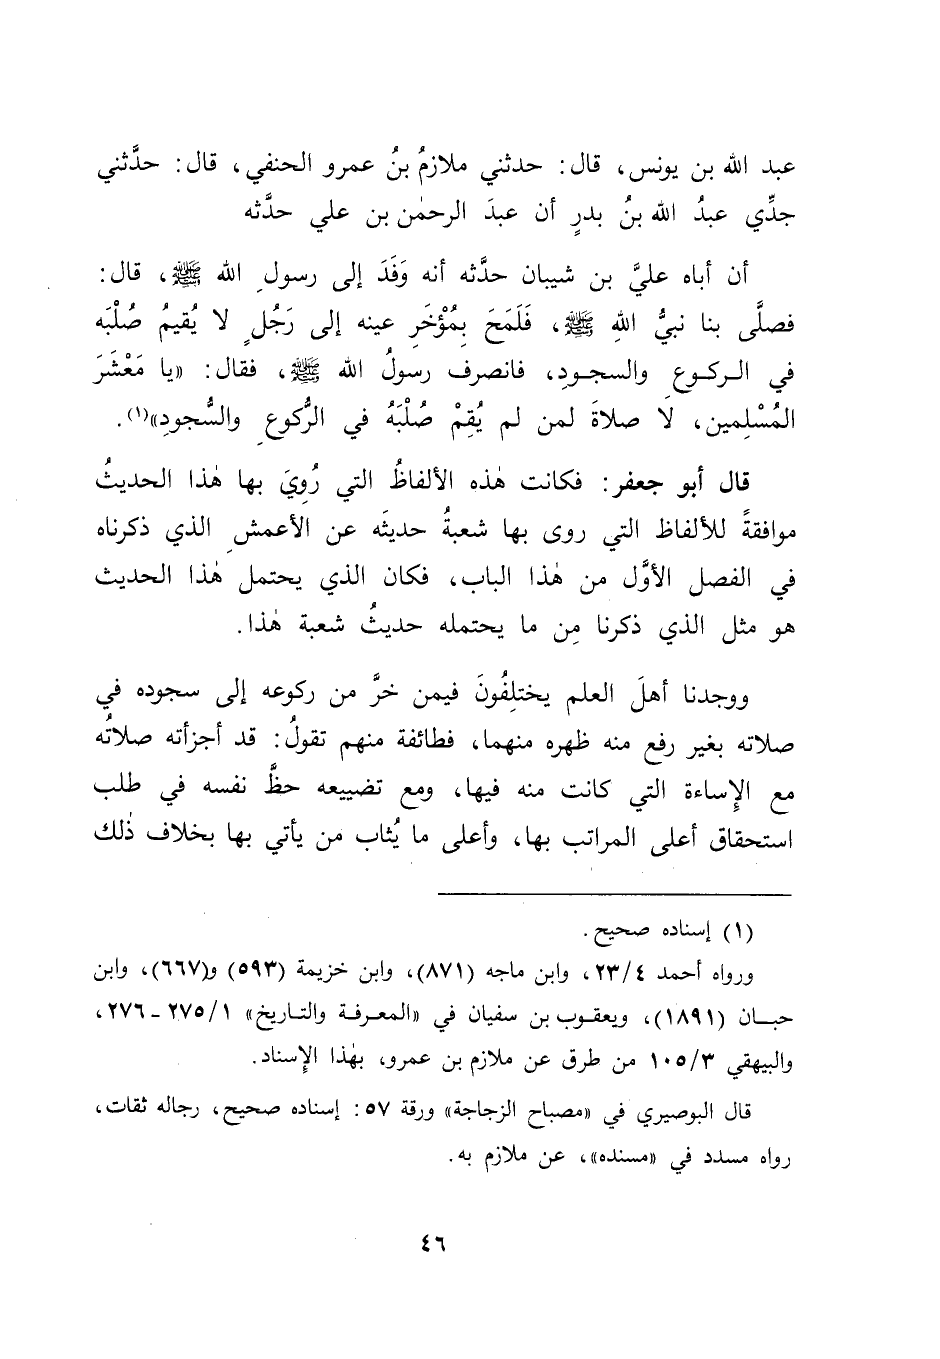 عبد الله بن يونس، قال: حدثني ملازمُ بنُ عمرو الحنفي، قال: حدَّثني
جدِّي عبدُ الله بنُ بدرٍ أن عبدَ الرحمٰن بن علي حدَّثه
أن أباه عليَّ بن شيبان حدَّثه أنه وَفَدَ إلى رسولِ الله ﷺ، قال:
فصلَّى بنا نبيُّ اللهِ ﷺ، فَلَمَحَ بِمُؤْخَرِ عينه إلى رَجُلٍ لا يُقيمُ صُلْبَه
في الركوعِ والسجودِ، فانصرف رسولُ الله ﷺ، فقال: «يا مَعْشَرَ
المُسْلِمين، لا صلاةَ لمن لم يُقِمْ صُلْبَهُ في الرُّكوعِ والسُّجودِ»(١).
قال أبو جعفر: فكانت هٰذه الألفاظُ التي رُوِيَ بها هٰذا الحديثُ
موافقةً للألفاظ التي روى بها شعبةُ حديثَه عن الأعمشِ الذي ذكرناه
في الفصل الأوَّل من هٰذا الباب، فكان الذي يحتمل هٰذا الحديث
هو مثل الذي ذكرنا مِن ما يحتمله حديثُ شعبة هٰذا.
ووجدنا أهلَ العلم يختلِفُونَ فيمن خرَّ من ركوعه إلى سجوده في
صلاته بغير رفع منه ظهره منهما، فطائفة منهم تقولُ: قد أجزأته صلاتُه
مع الإِساءة التي كانت منه فيها، ومع تضييعه حظَّ نفسه في طلب
استحقاق أعلى المراتب بها، وأعلى ما يُثاب من يأتي بها بخلاف ذٰلك
(١) إسناده صحيح.
ورواه أحمد ٢٣/٤، وابن ماجه (٨٧١)، وابن خزيمة (٥٩٣) و(٦٦٧)، وابن
حبان (١٨٩١)، ويعقوب بن سفيان في «المعرفة والتاريخ» ٢٧٥/١-٢٧٦،
والبيهقي ١٠٥/٣ من طرق عن ملازم بن عمرو، بهٰذا الإِسناد.
قال البوصيري في «مصباح الزجاجة» ورقة ٥٧: إسناده صحيح، رجاله ثقات،
رواه مسدد في «مسنده»، عن ملازم به.
٤٦